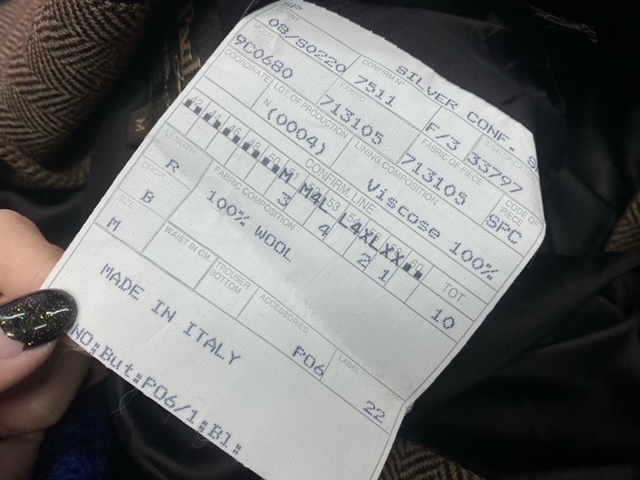 08/S0220 SILVER CONF.
CONFIRM N°
9C0680 7511 F/3 33797
COORDINATE FABRIC FABRIC OF PIECE CODE OF PIECE
713105 713105 SFC
LOT. OF PRODUCTION LINING COMPOSITION
N (0004) Viscose 100%
CONFIRM LINE
M M4L L4XLXX
3 4 2 1 10
TOT.
LENGTH R
FABRIC COMPOSITION
DROP B 100% WOOL
SIZE M
WAIST IN CM. TROUSER BOTTOM ACCESSORIES LABEL
P06 22
MADE IN ITALY
NO:But:P06/1:Bl: